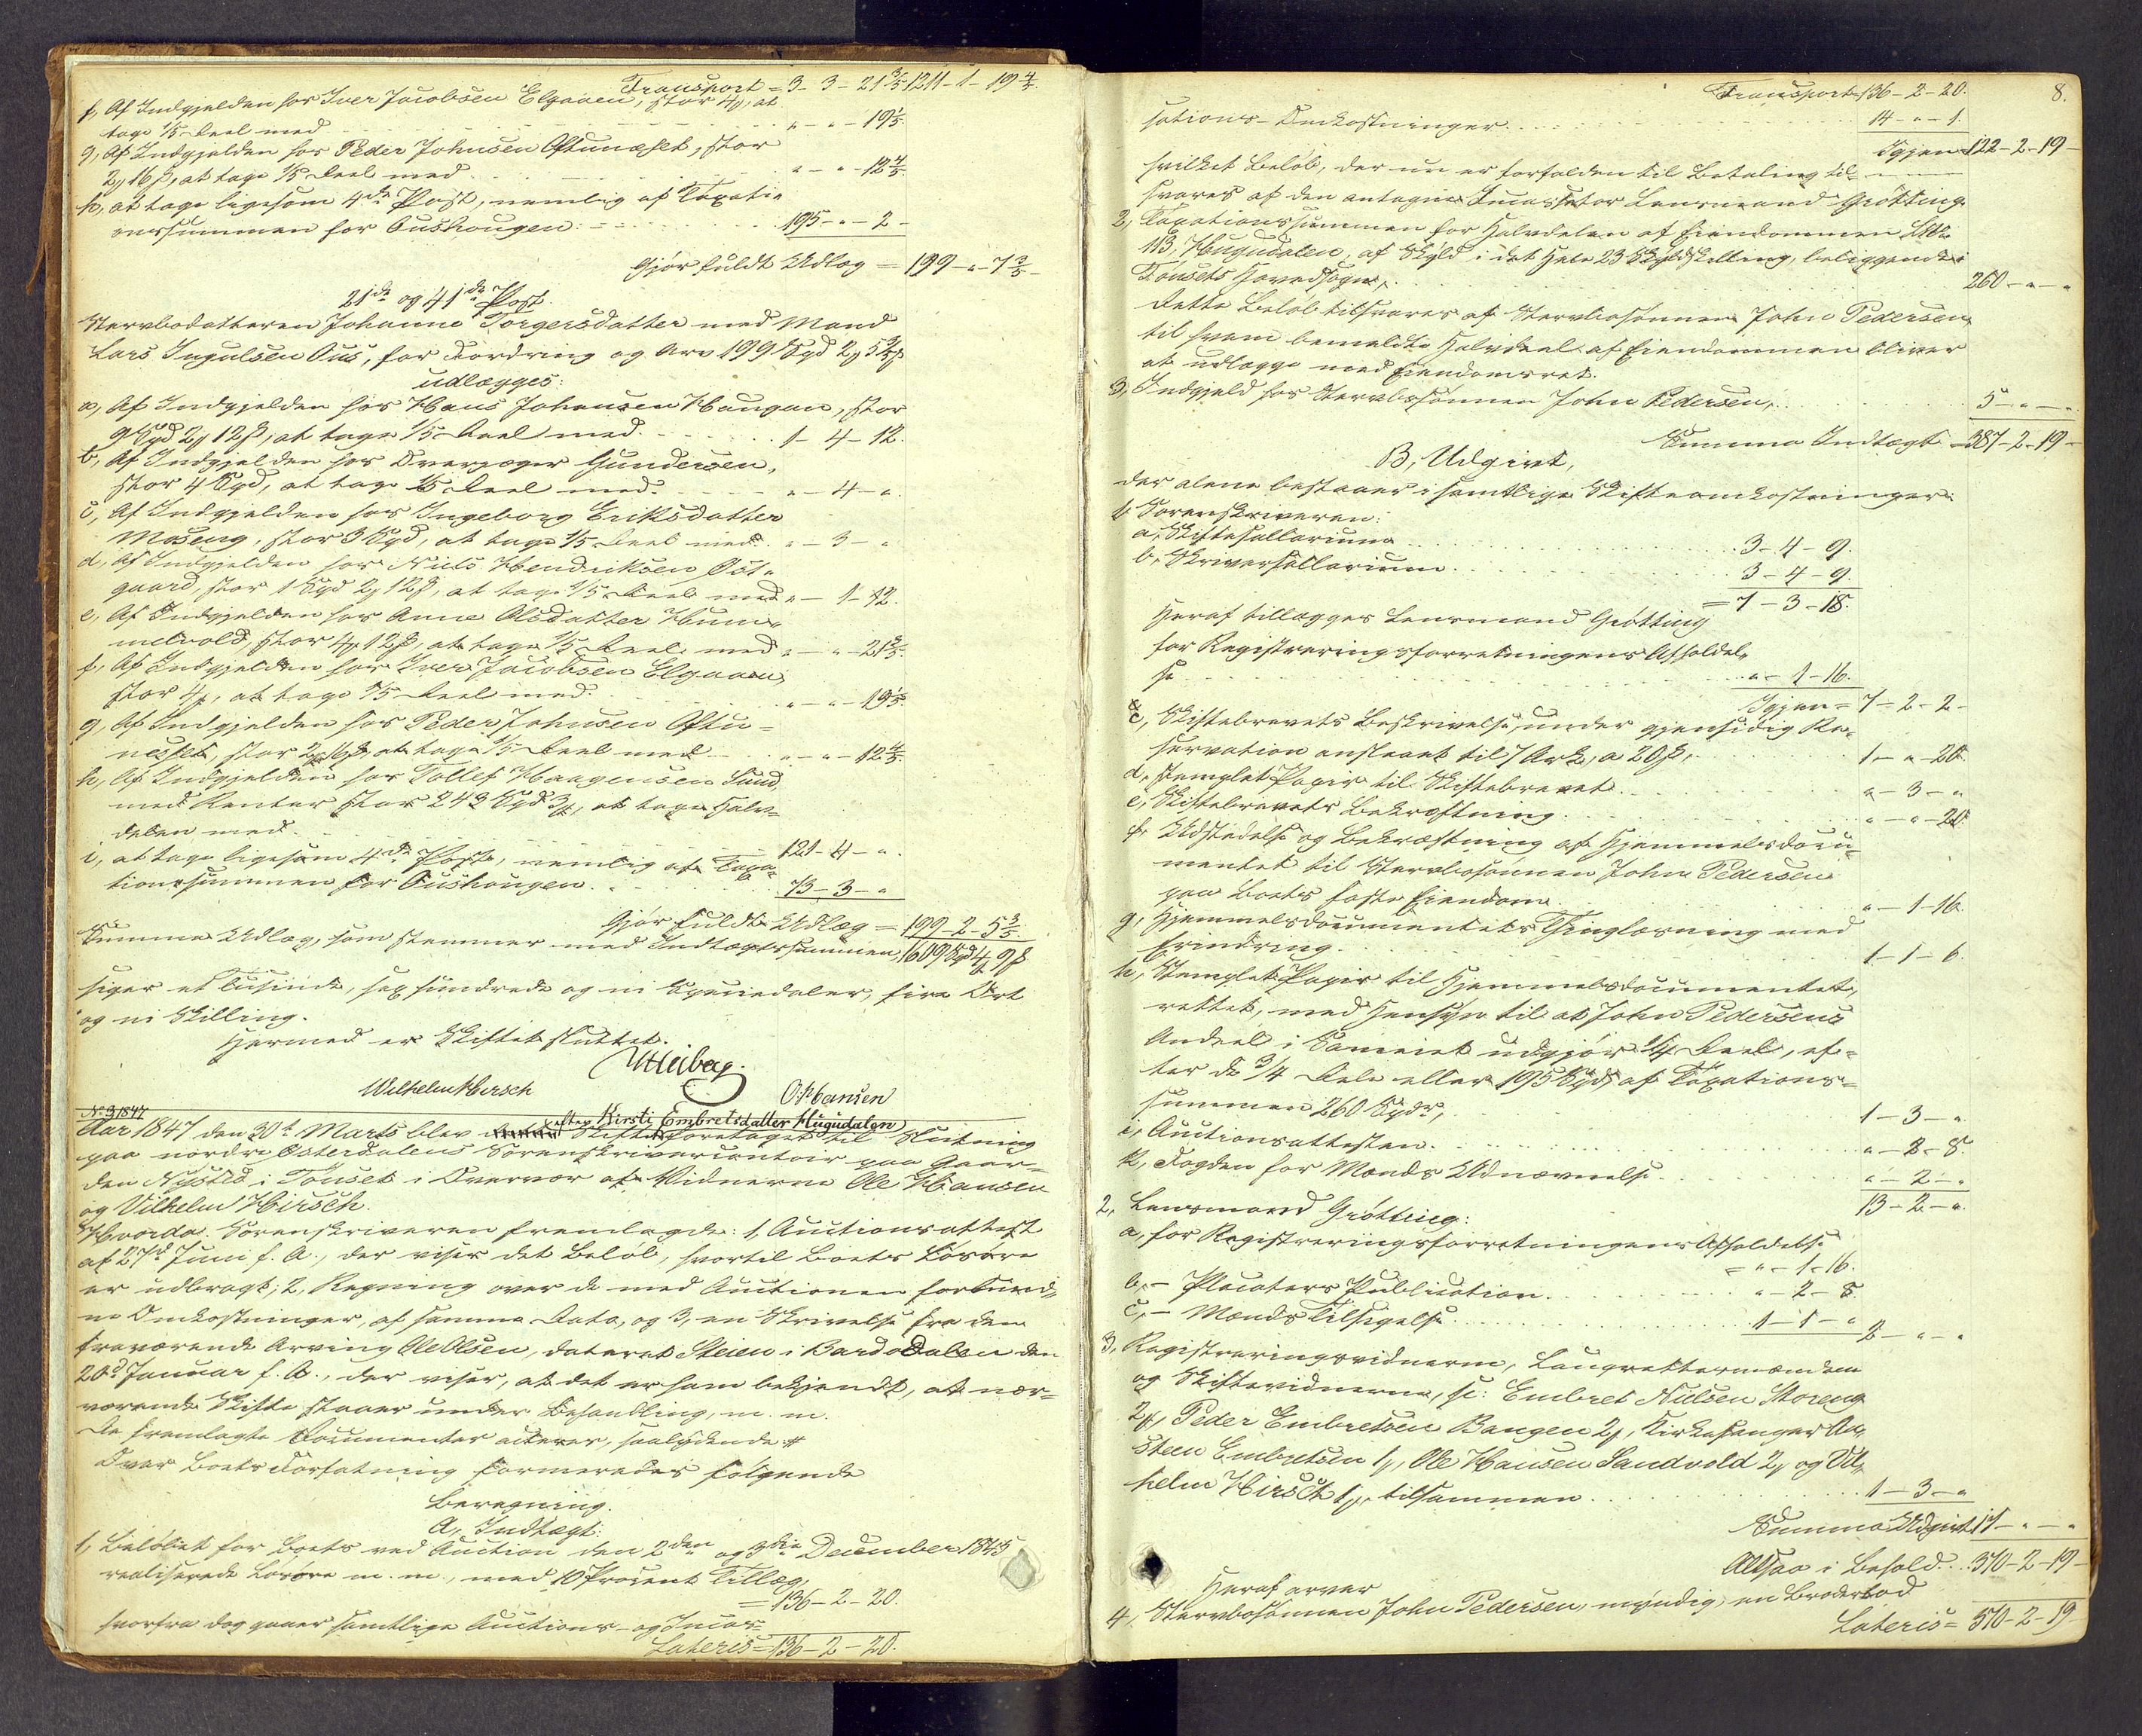 Transport = 3- 3- 21 3/5 1211- 1- 19 4/5.
f, Af Indgjelden hos Iver Jacobsen Elgaaen, stor 4 , at
tage 1/5 Deel med " - " - 19 1/5.
g, Af Indgjelden hos Peder Johnsen Aftunæset, stor
2 16 ß, at tage 1/5 Deel med " - " - 12 4/5.
h, at tage ligesom 4de Post, nemlig af Taxati-
onssummen for Aushougen: 195- " - 2 -
Gjør fuldt Udlæg = 199- " - 7 3/5 -
21de og 41de Post.
Stervbodatteren Johanne Torgersdatter med Mand
Lars Ingulsen Aus, for Fordring og Arv 199 Spd 2 5 3/5 ß
udlægges:
a, Af Indgjelden hos Hans Johansen Haugan, stor
9 Spd 2 12 ß, at tage 1/5 Deel med 1- 4- 12.
b, Af Indgjelden hos Overjæger Gundersen,
stor 4 Spd, at tage 1/5 Deel med " - 4- ".
c, Af Indgjelden hos Ingeborg Eriksdatter
Moseng, stor 3 Spd, at tage 1/5 Deel med " - 3- "
d, Af Indgjelden hos Niels Hendriksen Øst-
gaard, stor 1 Spd 2 12 ß, at tage 1/5 Deel med " - 1- 12.
e, Af Indgjelden hos Anne Olsdatter Hum-
melvold, stor 4 12 ß, at tage 1/5 Deel med " - " - 21 3/5.
f, Af Indgjelden hos Iver Jacobsen Elgaaen,
stor 4 , at tage 1/5 Deel med " - " - 19 1/5.
g, Af Indgjelden hos Peder Johnsen Aftu-
næset, stor 2 16 ß, at tage 1/5 Deel med " - " - 12 4/5.
h, Af Indgjelden hos Tollef Haagensen Lund,
med Renter stor 243 Spd 3 , at tage Halv-
delen med 121- 4- ".
i, at tage ligesom 4de Post, nemlig af Taxa-
tionssummen for Aushougen 73- 3- "
Gjør fuldt Udlæg = 199- 2- 5 3/5.
Summa Udlæg, som stemmer med Indtægtssummen, 1609 Spd 4 9 ß
siger et Tusinde, sex hundrede og ni Speciedaler, fire Ort
og ni Skilling.
Hermed er Skiftet sluttet.
Heiberg.
Wilhelm Hirsch O. Hansen
No 3 1847
efter Kirsti Embretsdatter Hugudalen
Aar 1847 den 30t Marts blev Skifte foretaget til Slutning
paa nordre Østerdalens Sorenskrivercontoir paa Gaar-
den Nysted i Tonset i Overvær af Vidnerne Ole Hansen
og Vilhelm Hirsch.
Hvorda Sorenskriveren fremlagde: 1, Auctionsattest
af 27de Juni f. A., der viser det Beløb, hvortil Boets Løsøre
er udbragt; 2, Regning over de med Auctionen forbund-
ne Omkostninger, af samme Dato, og 3, en Skrivelse fra den
fraværende Arving Ole Olsen, dateret Steien i BardoDalen den
20d Januar f. A., der viser, at det er ham bekjendt, at nær-
værende Skifte staaer under Behandling, m. m.
De fremlagte Documenter acteres, saalydende: #
Over Boets Forfatning formeredes følgende
Beregning.
A, Indtægt:
1, Beløbet for Boets ved Auction den 2den og 3die December 1845
realiserede Løsøre m. m., med 10 Procent Tillæg,
= 136- 2- 20.
hvorfra dog gaaer samtlige Auctions- og Incas-
Lateris = 136- 2- 20.
Transport 136- 2- 20. 8.
sations-Omkostninger 14- " - 1.
Igjen = 122- 2- 19 -
hvilket Beløb, der nu er forfalden til Betaling til-
svares af den antagne Incassator Lensmand Grøtting.
2, Taxationssummen for Halvdelen af Eiendommen Litr
113, Hugudalen, af Skyld i det Hele 23 Skyldskilling, beliggende i
Tonsets Hovedsogn, 260- " - "
Dette Beløb tilsvares af Stervbosønnen John Pedersen,
til hvem bemeldte Halvdeel af Eiendommen bliver
at udlægge med Eiendomsret.
3, Indgjeld hos Stervbosønnen John Pedersen, 5- " - ".
Summa Indtægt = 387- 2- 19 -
B, Udgivt,
der alene bestaaer i samtlige Skifteomkostninger.
1, Sorenskriveren:
a, Skiftesallarium 3- 4- 9.
b, Skriversallarium 3- 4- 9.
= 7- 3- 18.
Heraf tillægges Lensmand Grøtting
for Registreringsforretningens Afholdel-
se " - 1- 16.
Igjen = 7- 2- 2 -
c, Skiftebrevets Beskrivelse, under gjensidig Re-
servation anslaaet til 7 Ark, a 20 ß, 1- " - 20.
d, stemplet Papir til Skiftebrevet " - 3- "
e, Skiftebrevets Bekræftning " - " - 20.
f, Udstedelse og Bekræftning af Hjemmelsdocu-
mentet til Stervbosønnen John Pedersen
paa Boets faste Eiendom " - 1- 16.
g, Hjemmelsdocumentets Thinglæsning med
Erindring 1- 1- 6.
h, Stemplet Papir til Hjemmelsdocumentet,
rettet, med Hensyn til at John Pedersens
Andeel i Sameiet udgjør 1/4 Deel, ef-
ter de 3/4 Dele eller 195 Spdr af Taxations-
summen 260 Spdr, 1- 3- "
i, Auctionsattesten " - 2- 8.
k, Fogden for Mænds Udnævnelse " - 2- "
13- 2- ".
2, Lensmand Grøtting:
a, for Registreringsforretningens Afholdelse
= " - 1- 16.
b, - Placaters Publication " - 2- 8.
c, - Mænds Tilsigelse 1- 1- " 2- " - "
3, Registreringsvidnerne, Laugrettesmændene
og Skiftevidnerne, sc: Embret Nielsen Moreng
2 , Peder Embretsen Bangen 2 , Kirkesanger An-
steen Embretsen 1 , Ole Hansen Sandvold 2 og Vil-
helm Hirsch 1 , tilsammen 1- 3- "
Summa Udgivt 17- " - "
Altsaa i Behold 370- 2- 19 -
Heraf arver
4, Stervbosønnen John Pedersen, myndig, en Broderlod
Lateris = 370- 2- 19